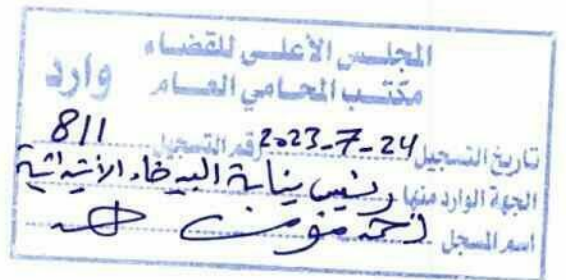 المجلس الأعلى للقضاء
مكتب المحامي العام
وارد
تاريخ التسجيل 24-7-2023 رقم التسجيل 811
الجهة الوارد منها رئيس نيابة البيضاء الابتدائية
اسم المسجل احمد